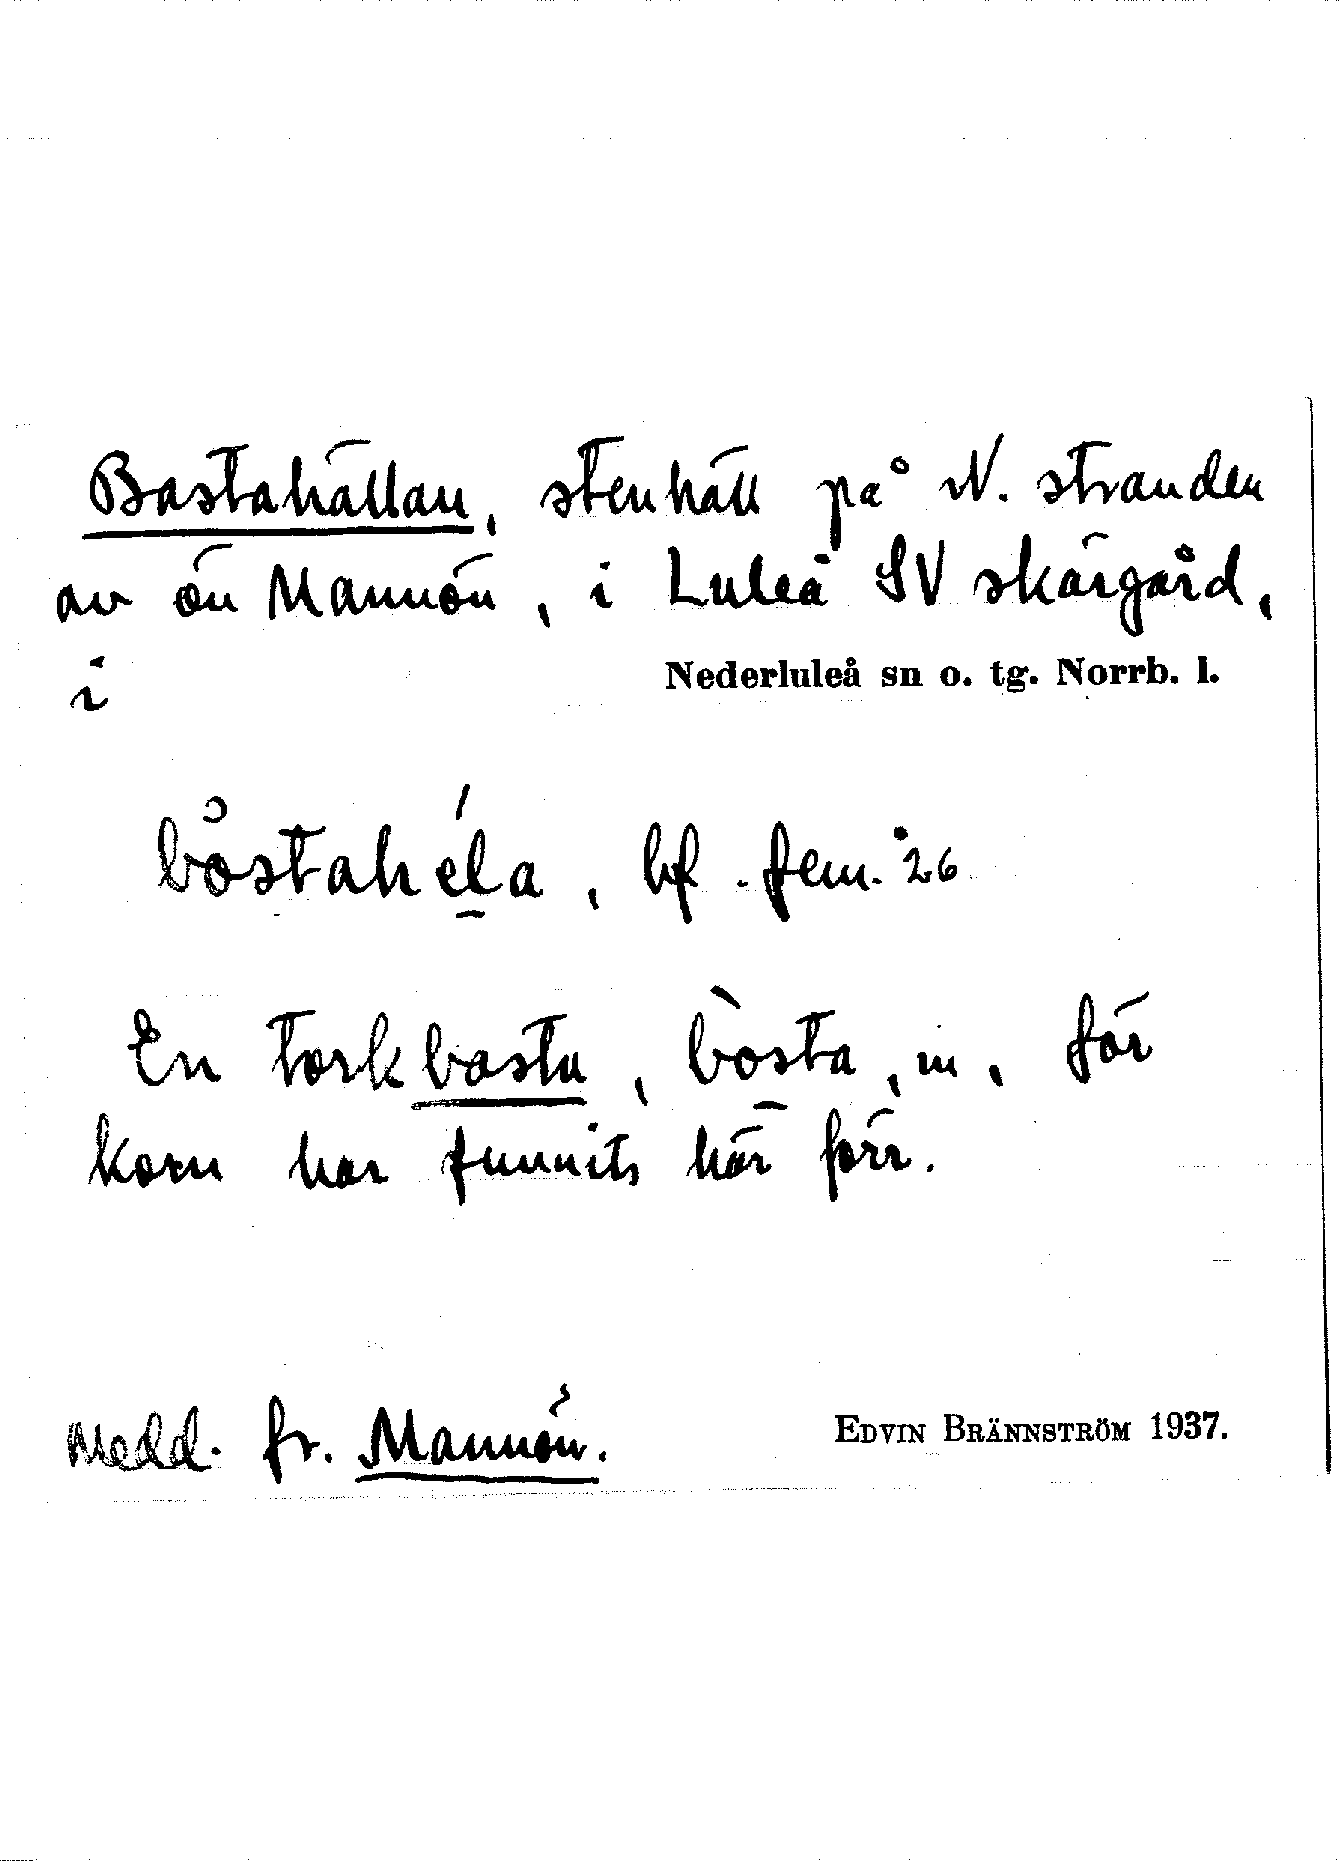 Bastahällan, stenhäll på N. stranden
av ön Mannön, i Luleå SV skärgård,
i Nederluleå sn o. tg. Norrb. l.
bòstahéla, bf. fem. 26
En torkbastu, bòsta, m, för
korn har funnits här förr.
Medd. fr. Mannön. EDVIN BRÄNNSTRÖM 1937.